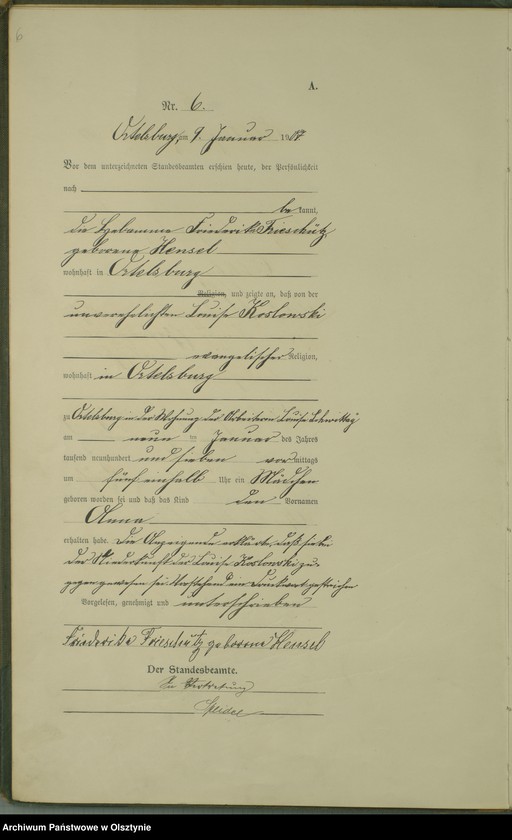 6
A.
Nr. 6.
Ortelsburg, am 9. Januar 1907
Vor dem unterzeichneten Standesbeamten erschien heute, der Persönlichkeit
nach
be kannt,
die Hebamme Friederike Frieschütz
geborene Hensel
wohnhaft in Ortelsburg
Religion, und zeigte an, daß von der
unverehelichten Louise Koslowski
evangelischer Religion,
wohnhaft in Ortelsburg
zu Ortelsburg in der Wohnung der Arbeiterin Louise
am neun ten Januar des Jahres
tausend neunhundert und sieben vor mittags
um fünf einhalb Uhr ein Mädchen
geboren worden sei und daß das Kind den Vornamen
Anna
erhalten habe. Die Anzeigende erklärte, daß sie bei
der Niederkunft der Louise Koslowski zu-
gegen gewesen sei. Vorstehend ein Druckwort gestrichen
Vorgelesen, genehmigt und unterschrieben
Friederike Frieschütz geborene Hensel
Der Standesbeamte.
In Vertretung
Archiwum Państwowe w Olsztynie